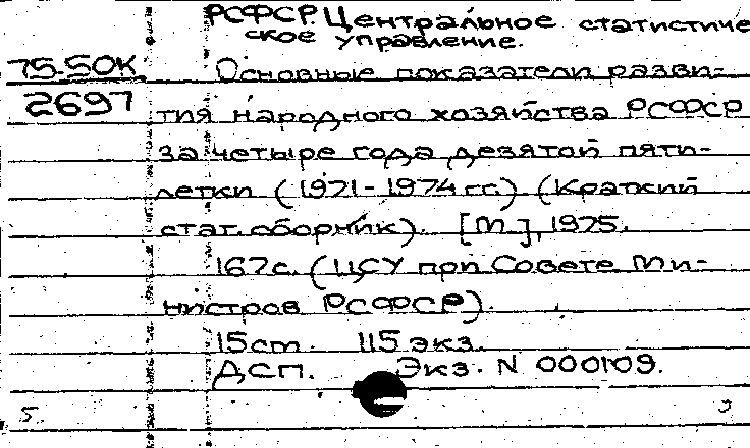 РСФСР. Центральное статистиче
ское управление.
75-50К
2697
Основные показатели разви-
тия народного хозяйства РСФСР
за четыре года девятой пяти-
летки (1971-1974 гг.) (Краткий
стат. сборник). [М], 1975.
167с. (ЦСУ при Совете Ми-
нистров РСФСР).
15 ст. 115 экз.
ДСП. Экз. N 000109.
5